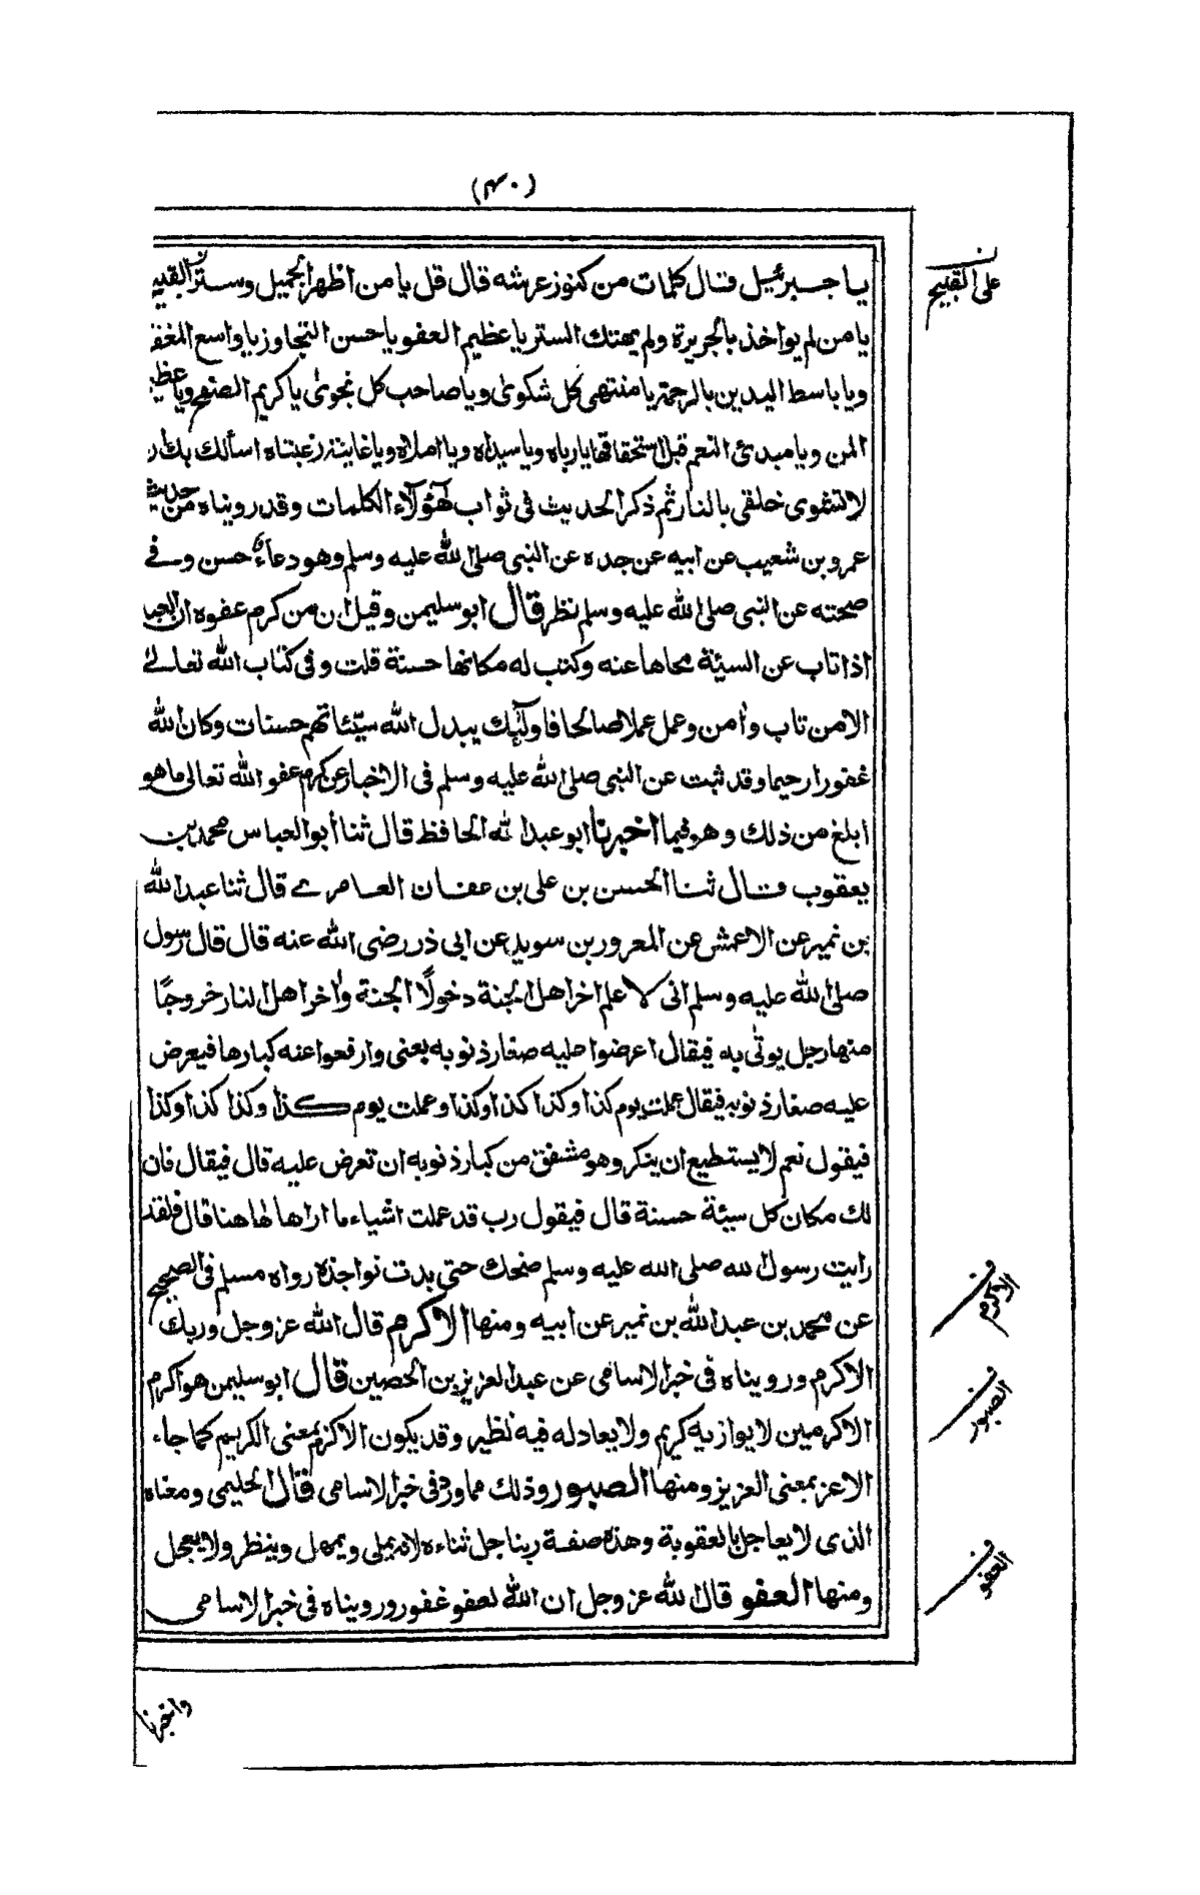 (٤٠)
يا جبرئيل قال كلمات من كنوز عرشه قال قل يا من اظهر الجميل وستر القبيح
على القبيح
يا من لم يواخذ بالجريرة ولم يهتك الستر يا عظيم العفو يا حسن التجاوز يا واسع المغفر
ويا باسط اليدين بالرحمة يا منتهى كل شكوى ويا صاحب كل نجوى يا كريم الصفح ويا عظيم
المن ويا مبدئ النعم قبل استحقاقها يا رباه ويا سيداه ويا املاه ويا غاية رغبتاه اسألك بك ان
لا تشوى خلقى بالنار ثم ذكر الحديث فى ثواب هٰؤلاء الكلمات وقد رويناه من حديث
عمرو بن شعيب عن ابيه عن جده عن النبى صلى الله عليه وسلم وهو دعاء حسن وفى
صحته عن النبى صلى الله عليه وسلم نظر قال ابو سليمن وقيل ان من كرم عفوه ان العبد
اذا تاب عن السيئة محاها عنه وكتب له مكانها حسنة قلت وفى كتاب الله تعالى
الا من تاب وٰامن وعمل عملا صالحا فاولٰئك يبدل الله سيّئاتهم حسنات وكان الله
غفورا رحيما وقد ثبت عن النبى صلى الله عليه وسلم فى الاخبار عن كرم عفو الله تعالى ما هو
ابلغ من ذلك وهو فيما اخبرنا ابو عبد الله الحافظ قال ثنا ابو العباس محمد بن
يعقوب قال ثنا الحسن بن على بن عفان العامرى قال ثنا عبد الله
بن نمير عن الاعمش عن المعرور بن سويد عن ابى ذر رضى الله عنه قال قال رسول
صلى الله عليه وسلم انى لاعلم اخر اهل الجنة دخولًا الجنة وٰاخر اهل النار خروجًا
منها رجل يوتٰى به فيقال اعرضوا عليه صغار ذنوبه يعنى وارفعوا عنه كبارها فيعرض
عليه صغار ذنوبه فيقال عملت يوم كذا وكذا كذا وكذا وعملت يوم كذا وكذا كذا وكذا
فيقول نعم لا يستطيع ان ينكر وهو مشفق من كبار ذنوبه ان تعرض عليه قال فيقال فان
لك مكان كل سيئة حسنة قال فيقول رب قد عملت اشياء ما اراها هاهنا قال فلقد
رايت رسول لله صلى الله عليه وسلم ضحك حتى بدت نواجذه رواه مسلم فى الصحيح
عن محمد بن عبد الله بن نمير عن ابيه ومنها الاكرم قال الله عز وجل وربك
الاكرم
الاكرم ورويناه فى خبر الاسامى عن عبد العزيز بن الحصين قال ابو سليمن هو اكرم
الصبور
الاكرمين لا يوازيه كريم ولا يعادله فيه نظير وقد يكون الاكرم بمعنى الكريم كما جاء
الاعز بمعنى العزيز ومنها الصبور وذلك مما ورد فى خبر الاسامى قال الحليمى ومعناه
الذى لا يعاجل بالعقوبة وهذه صفة ربنا جل ثناءه لانه يملى ويمهل وينظر ولا يعجل
العفو
ومنها العفو قال لله عز وجل ان الله لعفو غفور ورويناه فى خبر الاسامى
واخبرنا